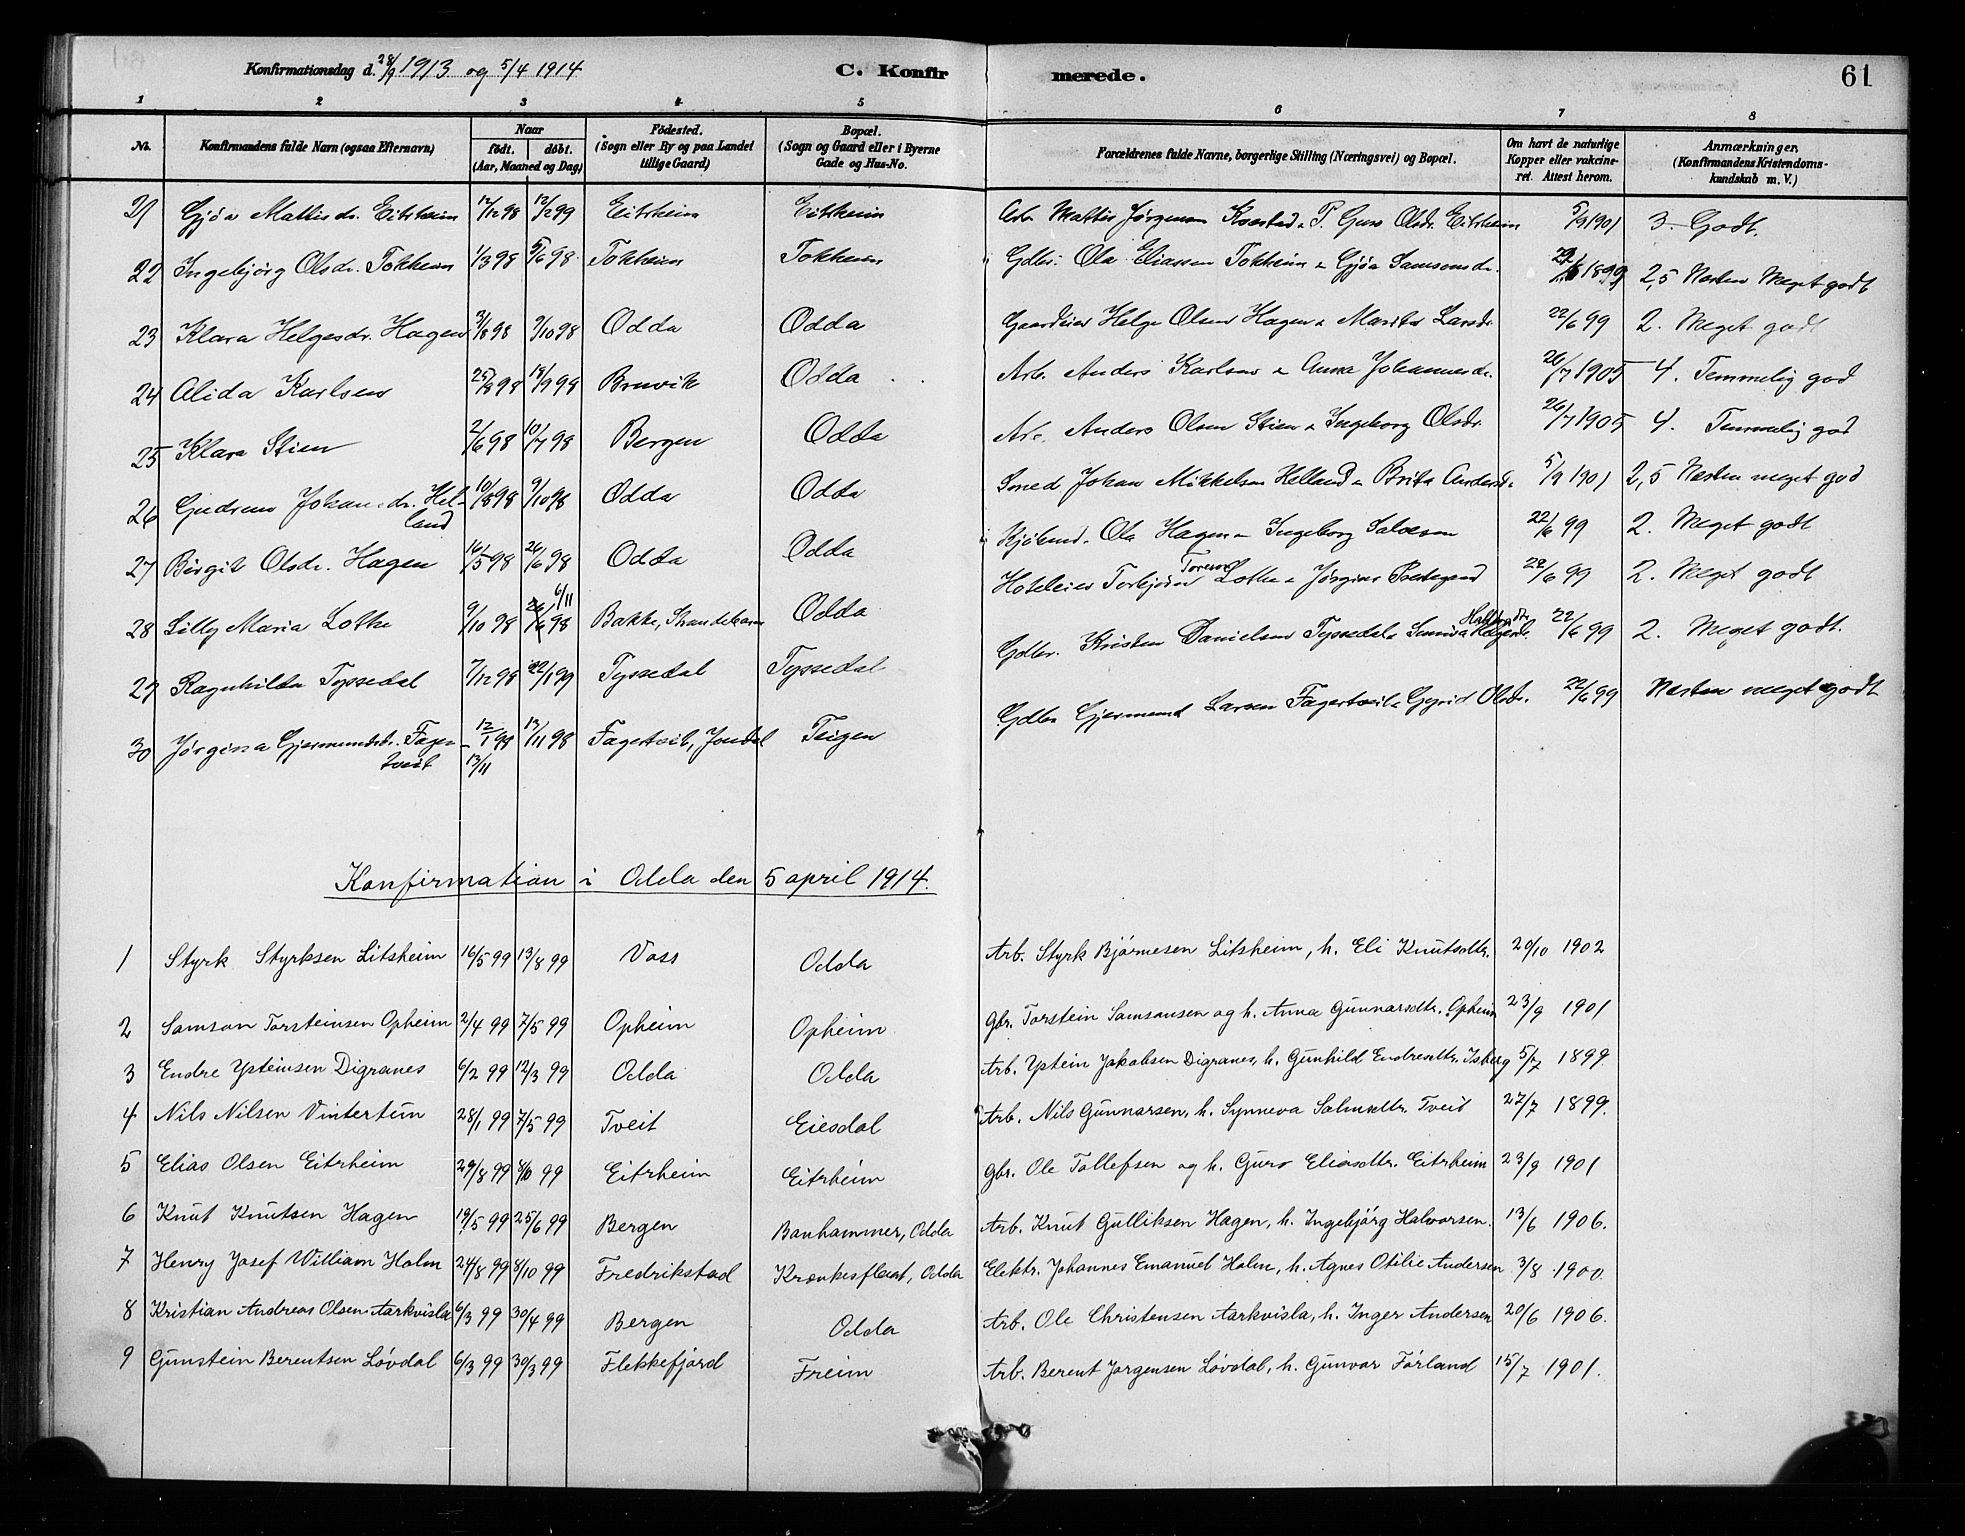 Konfirmationsdag d. 28/9 1913 og 5/4 1914 C. Konfirmerede. 61
1 2 3 4 5 6 7 8
No. Konfirmandens fulde Navn (ogsaa Efternavn.) Naar født. døbt. (Aar, Maaned og Dag) Födested. (Sogn eller By og paa Landet tillige Gaard) Bopæl. (Sogn og Gaard eller i Byerne Gade og Hus-No. Forældrenes fulde Navne, borgerlige Stilling (Næringsvei) og Bopæl. Om havt de naturlige Kopper eller vakcineret. Attest herom. Anmærkninger. (Konfirmandens Kristendomskundskab m. V.)
21 Gjøa Mattisdr. Eitrheim 12/12 98 12/2 99 Eitrheim Eitrheim Arb. Mattis Jørgensen P. Guro Olsdr. Eitrheim 5/9 1901 3. Godt.
22 Ingebjørg Olsdr. Tokheim 1/3 98 5/6 98 Tokheim Tokheim Gdbr. Ola Eliassen Tokheim & Gjøa Samsonsdr. 1899 2,5 Nesten Meget godt
23 Klara Helgesdr. Hagen 3/8 98 9/10 98 Odda Odda Gaardeier Helge Olsen Hagen & Marita Larsdr. 22/6 99 2. Meget godt
24 Alida Karlsen 25/8 98 18/9 98 Bruvik Odda Arb. Anders Karlsen & Anna Johannesdr. 26/7 1905 4. Temmelig god
25 Klara Stien 2/6 98 10/7 98 Bergen Odda Arb. Anders Olsen Stien & Ingeborg Olsdr. 26/7 1905 4. Temmelig god
26 Gudrun Johansdr. Helland 10/8 98 9/10 98 Odda Odda Smed Johan Mikkelsen Helland & Brita Andersd. 5/9 1901 2,5 Nesten meget god
27 Birgit Olsdr. Hagen 16/5 98 26/6 98 Odda Odda Kjøbmd. Ola Hagen & Ingeborg Salvesen 22/6 99 2. Meget godt
28 Lilly Maria Lothe 9/10 98 6/11 98 Bakke, Odda Hoteleier Torbjørn Toresen Lothe & Jørgine 22/6 99 2. Meget godt
29 Ragnhilda Tyssedal 7/12 98 22/1 99 Tyssedal Tyssedal Gdbr. Kristen Danielsen Tyssedal & 22/6 99 2. Meget godt.
30 Jørgina Gjermundsdr. Fagertveit 12/1 98 13/11 13/11 98 Fagertveit, Jondal Teigen Gdbr. Gjermund Larsen Fagertveit & Gyrid Olsdr. 22/6 99 Nesten meget godt
Konfirmation i Odda den 5 april 1914.
1 Styrk Styrksen Litsheim 16/5 99 13/8 99 Voss Odda Arb. Styrk Bjørnesen Litsheim, h. Eli Knutsdtr. 20/10 1902
2 Samson Torsteinsen Opheim 2/4 99 7/5 99 Opheim Opheim Gbr. Torstein Samsonsen og h. Anna Gunnarsdtr. Opheim 23/9 1901
3 Endre Ysteinsen Digranes 6/2 99 12/3 99 Odda Odda Arb. Ystein Jakobsen Digranes, h. Gunhild Endresdtr. Isberg 5/7 1899.
4 Nils Nilsen Vintertun 28/1 99 7/5 99 Tveit Eiesdal Arb. Nils Gunnarsen, h. Synneva Salmsdtr. Tveit 27/7 1899.
5 Elias Olsen Eitrheim 29/8 99 8/10 99 Eitrheim Eitrheim Gbr. Ole Tollefsen og h. Guro Eliasdtr. Eitrheim 23/9 1901
6 Knut Knutsen Hagen 19/5 99 25/6 99 Bergen Banhammer, Odda Arb. Knut Gulliksen Hagen, h. Ingebjørg Halvorsen. 13/6 1906.
7 Henry Josef William Holm 24/8 99 8/10 99 Fredrikstad Odda Elektr. Johannes Emanuel Holm, h. Agnes Otilie Andersen 3/8 1900
8 Kristian Andreas Olsen Aarkvisla 6/3 99 30/4 99 Bergen Odda Arb. Ole Christensen Aarkvisla, h. Inger Andersen 20/6 1906.
9 Gunstein Berentsen Løvdal 6/3 99 30/3 99 Flekkefjord Freim Arb. Berent Jørgensen Løvdal, h. Gunvor Førland 15/7 1901.